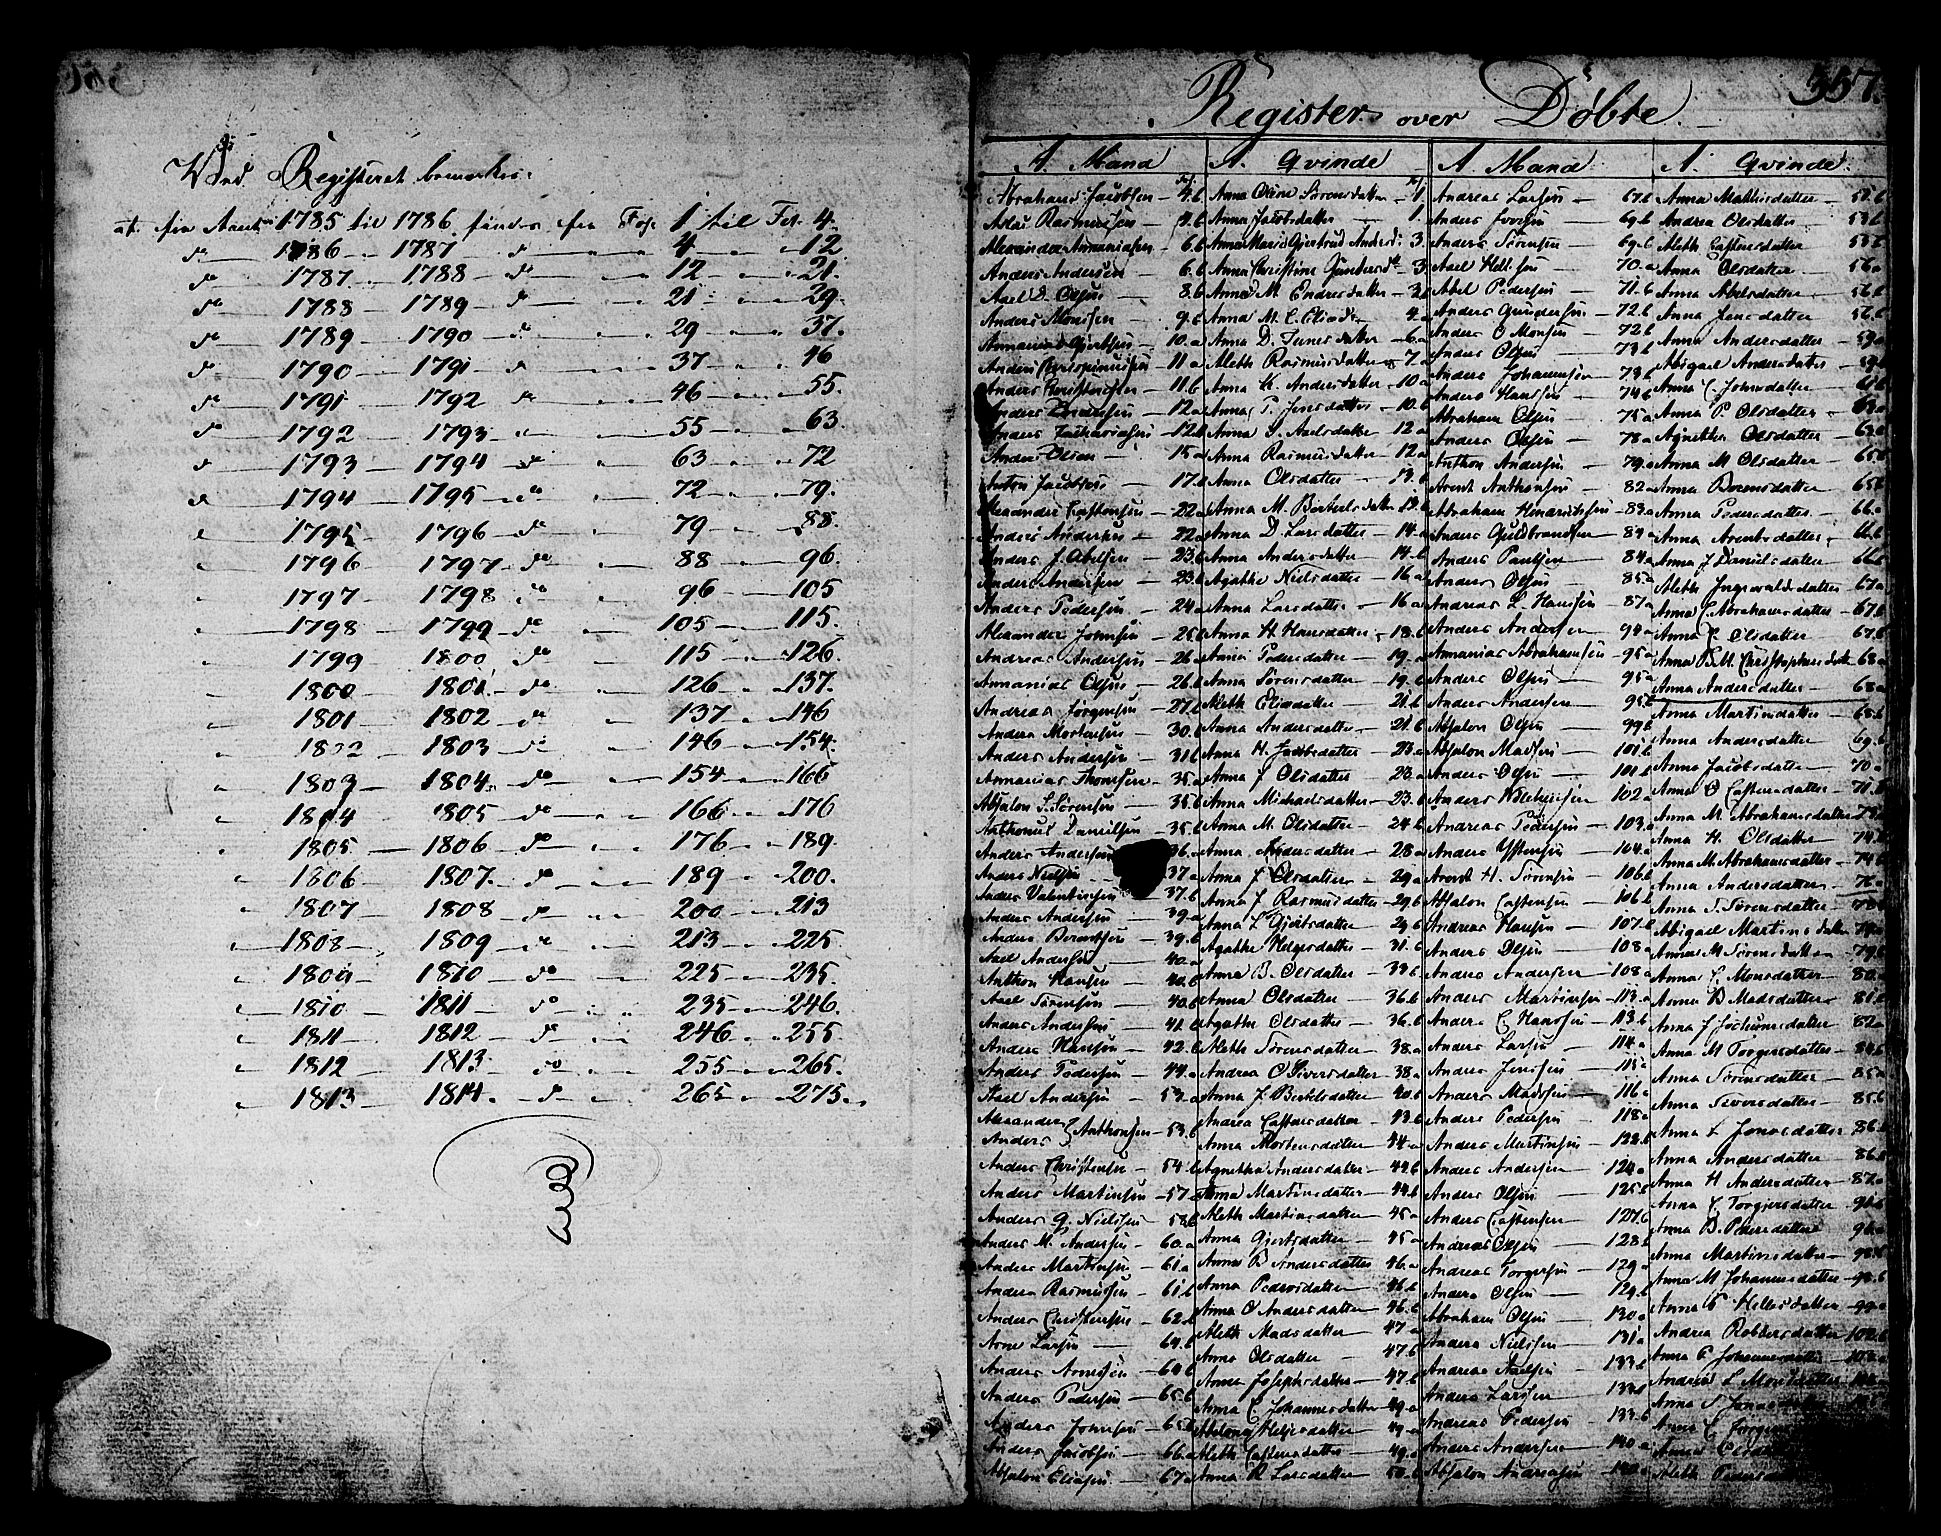 Ved Registeret bemærkes:
at fra Aaret 1785 til 1786 findes fra Fol. 1 til Fol. 4.
do 1786 - 1787 do 4 - 12
do 1787 - 1788 do 12 - 21.
do 1788 - 1789 do 21 - 29.
do 1789 - 1790 do 29 - 37.
do 1790 - 1791 do 37 - 46
do 1791 - 1792 do 46 - 55.
do 1792 - 1793 do 55 - 63.
do 1793 - 1794 do 63 - 72
do 1794 - 1795 do 72 - 79.
1795 - 1796 do 79 - 88.
1796 - 1797 do 88 - 96.
1797 - 1798 do 96 - 105
1798 - 1799 do 105 - 115.
1799 - 1800 do 115 - 126.
1800 - 1801 do 126 - 137.
1801 - 1802 do 137 - 146
1802 - 1803 do 146 - 154.
1803 - 1804 do 154 - 166
1804 - 1805 do 166 - 176
1805 - 1806 do 176 - 189.
1806 - 1807 do 189 - 200.
1807 - 1808 do 200 - 213
1808 - 1809 do 213 - 225
1809 - 1810 do 225 - 235.
1810 - 1811 do 235 - 246.
1811 - 1812 do 246 - 255
1812 - 1813 do 255 - 265.
1813 - 1814 do 265 - 275.
Register over Døbte.
357.
A. Mand
Abraham Jacobsen - 4.b
Adau Rasmussen - 4.b
Alexander Annaniasen - 6.b
Anders Andersen 6.b
Axel D. Olsen - 8.b
Anders Monsen - 9.b
Annanias Gjertsen - 10.a
Anders Crispinussen 11 a
Anders Christensen - 11.b
Anders Andersen - 12 a
Anders Zachariasen - 12.b
Anders Olsen - 15 a
Anton Jacobsen - 17.b
Alexander Castensen - 22 a
Anders Andersen - 22 a
Anders J. Abelsen - 23.b
Anders Andersen - 23.b
Anders Pedersen - 24 a
Alexander Johnsen - 25.b
Andreas Andersen - 26 a
Annanias Olsen - 26.b
Andreas Jørgensen - 27.b
Anders Mortensen - 30.b
Anders Andersen - 31 b
Annanias Thomsen - 35 a
Absalon S. Sørensen - 35.b
Anthonius Danielsen - 35.b
Anders Andersen 36.
Anders Nielsen 37.a
Anders Valentinsen 37.b
Anders Andersen - 39.a
Anders Berentsen - 39.b
Axel Andersen - 40.a
Anthon Hansen - 40.b
Axel Sørensen - 40.b
Anders Andersen - 41.b
Anders Hansen - 42.b
Anders Pedersen - 44.a
Axel Andersen - 53.a
Alexander
Anders } Anthonsen - 53.b
Anders Christensen - 54.b
Anders Martinsen - 57.a
Anders G. Nielsen - 58b
Anders M. Andersen - 60.a
Anders Martinsen - 61.a
Anders Rasmussen - 61.b
Anders Christensen - 62.b
Arne Larsen - 64.b
Anders Arnesen - 64 b
Anders Pedersen - 65.b
Anders Johnsen - 65.b
Anders Jacobsen - 66.a
Absalon Eliasen - 67 a
A. Qvinde
Anna Oline Sørensdatter - 1
Anna Jacobsdatter - 1.
Anna Maria Gjertrud Andersd: 3.
Anna Christine Gundersd. 3
Anna M. Endresdatter - 3.b
Anna M. C. Eliasd: - 4.a
Anna D. Tennesdatter - 6.a
Aleth Rasmusdatter - 7.a
Anna K. Andersdatter - 10 a
Anna T. Jensdatter - 10.b
Anna D. Axelsdatter - 12 a
Anna Rasmusdatter - 12 a
Anna Olsdatter - 13.b
Anna M. Bertelsdatter 13.b
Anna D. Larsdatter - 14.a
Anna Andersdatter - 14.b
Agathe Nielsdatter - 16 a
Anna Larsdatter - 16 a
Anna H. Hansdatter - 18.b
Anna Pedersdatter - 19.a
Anna Sørensdatter - 19.b
Aleth Eliasdatter - 21.b
Anna Andersdatter - 21.b
Anna H. Jacobsdatter - 23.a
Anna J Olsdatter - 23.a
Anna Michaelsdatter - 23.b
Anna M. Olsdatter - 24.b
Anna Andersdatter - 28 a
Anna J. Olsdatter - 29.a
Anna J Rasmusdatter - 29.b
Anna L Gjertsdatter - 29 b
Agathe Helgesdatter - 31.b
Anna B. Olsdatter - 33 b
Anna Olsdatter - 36.b
Agathe Olsdatter - 36.b
Aleth Sørensdatter - 38.a
Andrea O Siversdatter - 38.a
Anna J Bertelsdatter 40.b
Andrea Castensdatter - 43.b
Anna Mortensdatter - 44.a
Agnetha Andersdatter - 44.b
Anna Martinsdatter - 44.b
Aleth Martinsdatter - 45.a
Anna Gjertsdatter - 45 a
Anna B Andersdatter 46.a
Anna Pedersdatter - 46.b
Anna O Andersdatter - 46.b
Aleth Madsdatter - 47 a
Anna Olsdatter - 47.b
Anna Josephsdatter - 47.b
Anna C. Johannesdatter 49.a
Abelona Helgesdatter - 49.a
Aleth Castensdatter - 49.a
Anna R Larsdatter - 50.b
A. Mand
Andreas Larsen - 67.b
Anders Iversen - 69.b
Anders Sørensen - 69.b
Axel Hellesen - 70.a
Abel Pedersen - 71.b
Anders Gundersen - 72.b
Anders O Monsen - 72 b
Anders Olsen - 73 b
Anders Johannesen - 73.b
Anders Hansen - 74 b
Abraham Olsen - 75 a
Anders Olsen - 78 a
Anthon Andersen - 79.a
Arent Anthonsen - 82 a
Abraham Henrichsen - 83 a
Anders Guldbrandsen - 84 a
Anders Paulsen - 84 a
Anders Olsen - 85 a
Andreas L. Hansen - 87 a
Anders Andersen - 94 a
Annanias Abrahamsen - 95 a
Anders Olsen - 95 a
Anders Andersen - 95.b
Absalon Olsen - 99 b
Absalon Madsen - 101.b
Anders Olsen - 101.b
Anders Wilhelmsen - 102 a
Andreas Pedersen - 103.a
Anders Ystensen - 104.a
Arent H. Sørensen - 106 b
Absalon Castensen - 106 b
Andreas Hansen - 107.b
Anders Olsen - 108 a
Anders Andersen - 108 a
Anders Martinsen - 113.a
Anders C Hansen - 113.b
Anders Larsen - 114 a
Anders Jensen - 115 a
Anders Madsen - 116 a
Anders Pedersen - 118 a
Anders Martinsen - 122.b
Anders Andersen - 124.a
Anders Olsen - 125.b
Anders Castensen - 127.b
Andreas Olsen - 128 b
Andreas Torgersen - 129 a
Anders Olsen - 129.b
Abraham Olsen - 130 a
Anders Nielsen - 131 a
Andreas Axelsen - 133.b
Anders Larssen - 133.b
Andreas Pedersen - 133.b
Anders Andersen - 140.a
Absalon Andreasen - 140.a
A. Qvinde
Anna Mathisdatter - 53.b
Andrea Olsdatter - 53.b
Aleth Castensdatter - 55 b
Anna Olsdatter - 56.a
Anna Abelsdatter - 56.b
Anna Jensdatter - 56.b
Anna Andersdatter - 59.a
Abigael Andersdatter - 59.b
Anna C. Johnsdatter - 61.b
Anna P. Olsdatter - 63.a
Agnethe Olsdatter - 63.a
Anna M Olsdatter - 65 b
Anna Boensdatter - 65 b
Anna Pedersdatter - 66.a
Anna Arentsdatter - 66.b
Anna J Danielsdatter - 66.b
Aleth Ingewaldsdatter - 67.a
Anna C Abrahamsdatter - 67.b
Anna C. Olsdatter - 67.b
Anna B.M. Christophersdatter 68 a
Anna Andersdatter - 68 a
Anna Martinsdatter - 68.b
Anna Andersdatter - 69.b
Anna Jacobsdatter - 70.a
Anna O Castensdatter - 71.b
Anna M Abrahamsdatter 73.b
Anna H. Olsdatter - 74.b
Anna M. Abrahamsdatter - 74 b
Anna Andersdatter - 76.a
Anna S. Sørensdatter - 78.a
Abigael Martinsdatter 79.a
Anna M Sørensdatter - 79.b
Anna C. Monsdatter - 80.a
Anna D Madsdatter - 81.b
Anna J Jochumsdatter - 82 a
Anna M Torgersdatter - 84.b
Anna Sørensdatter - 85 a
Anna Siversdatter - 85.b
Anna L Jonasdatter 86.b
Anna Andersdatter - 86.b
Anna H Andersdatter - 87.a
Anna C. Torgjersdatter - 94.b
Anna B. Pedersdatter - 96 a
Anna Martinsdatter - 98.b
Anna M Johannesdatter - 98.b
Anna T Hellesdatter - 99 a
Andrea Robbersdatter - 102.b
Anna P Johannesdatter - 103.a
Andrea L Monsdatter
Anna S Jonasdatter
Anna C. Jørgens
Anna C
Aleth Pedersd